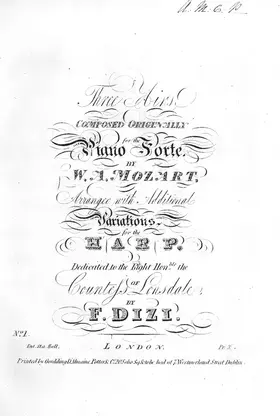 A. M. C. P.
Three Airs
COMPOSED ORIGINALLY
for the
Piano Forte,
BY
W. A. MOZART,
Arranged with Additional
Variations,
for the
HARP,
Dedicated to the Right Hon.ble the
Countess OF Lonsdale,
BY
F. DIZI.
No. 1.
Ent. Sta. Hall.
LONDON.
Pr.
Printed by Goulding, D'Almaine, Potter & Co. 20, Soho Sq. & to be had at 7, Westmorland Street Dublin.